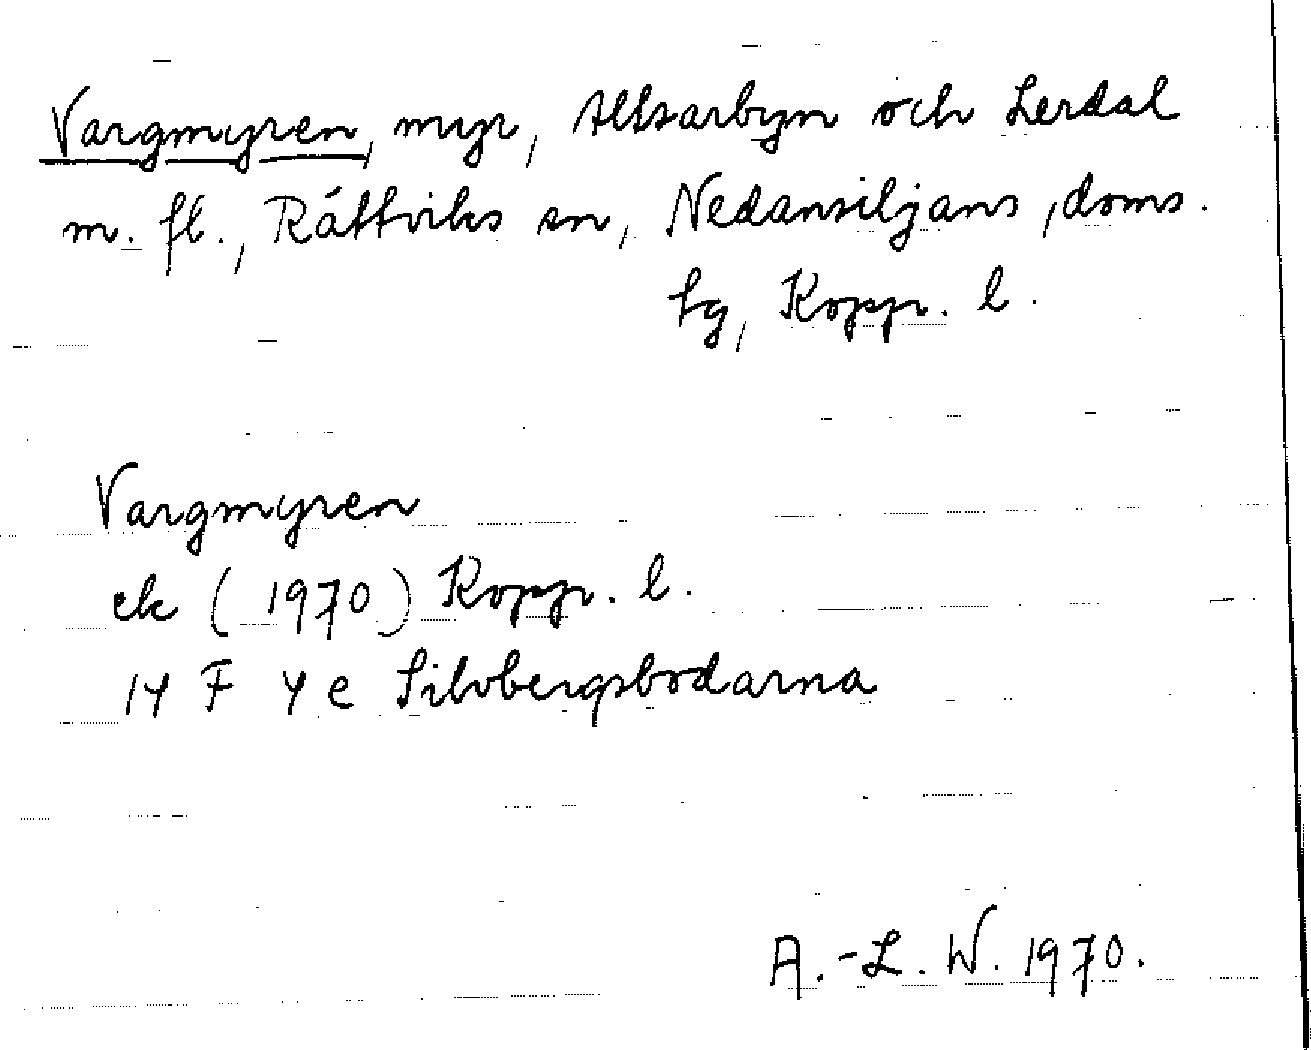 Vargmyren, myr, Altsarbyn och Lerdal
m. fl., Rättviks sn, Nedansiljans doms.
tg, Kopp. l.
Vargmyren
ek (1970) Kopp. l.
14 F 4 e Silvbergsbodarna
A.-L. W. 1970.